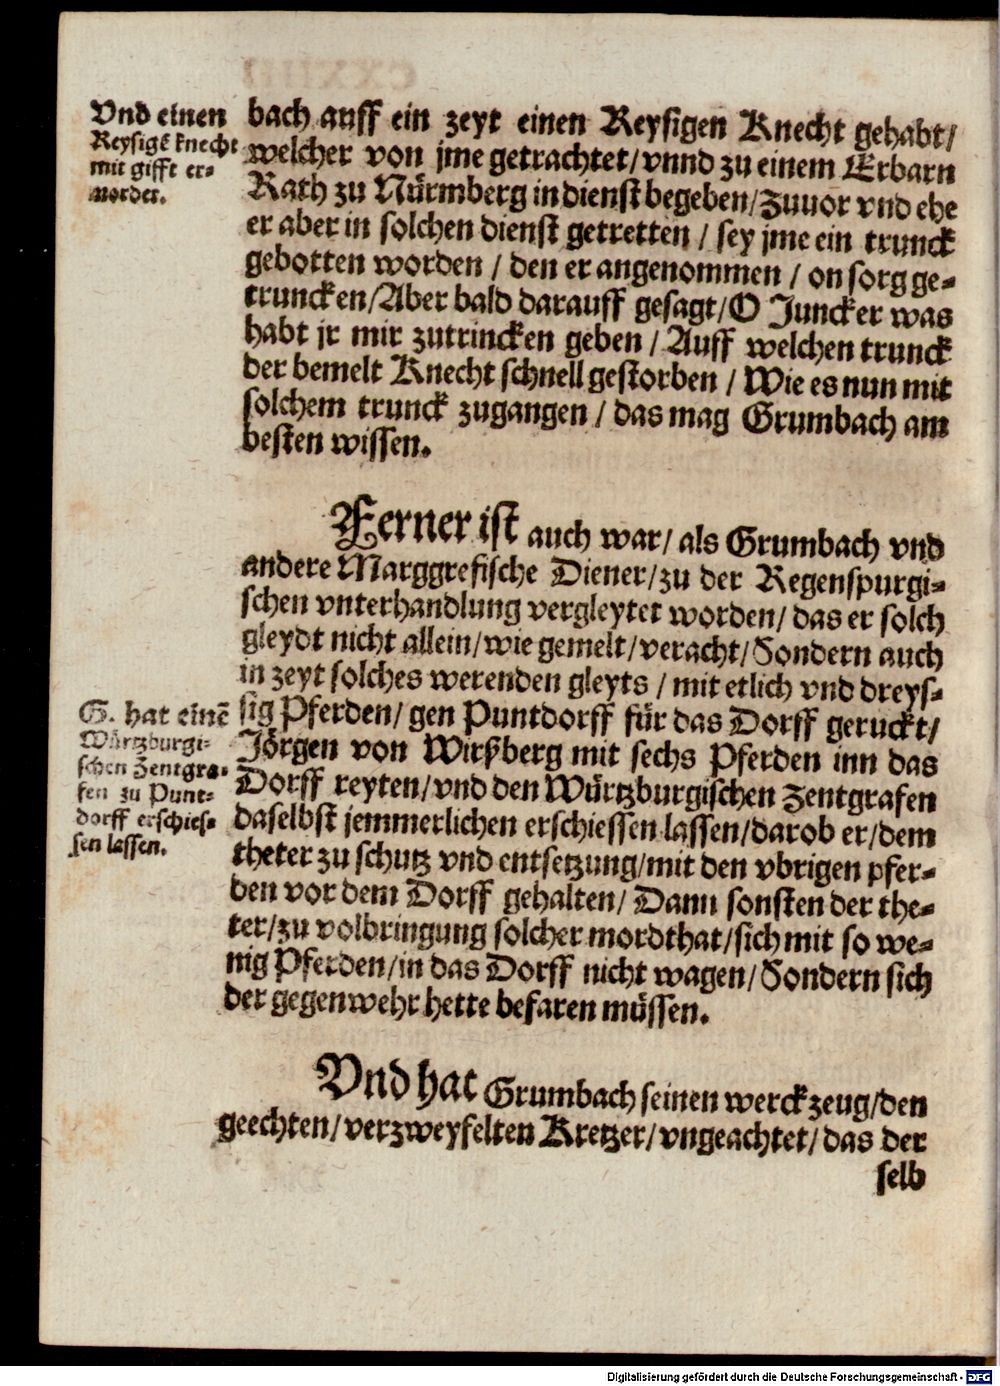 Vnd einen
Reysigē knecht
mit gifft er-
mordet.
bach auff ein zeyt einen Reysigen Knecht gehabt/
welcher von jme getrachtet/ vnnd zu einem Erbarn
Rath zu Nürmberg in dienst begeben/ Zuuor vnd ehe
er aber in solchen dienst getretten / sey jme ein trunck
gebotten worden / den er angenommen / on sorg ge-
truncken/ Aber bald darauff gesagt/ O Juncker was
habt jr mir zutrincken geben / Auff welchen trunck
der bemelt Knecht schnell gestorben / Wie es nun mit
solchem trunck zugangen / das mag Grumbach am
besten wissen.
Ferner ist auch war/ als Grumbach vnd
andere Marggrefische Diener/ zu der Regenspurgi-
schen vnterhandlung vergleytet worden/ das er solch
gleydt nicht allein/ wie gemelt/ veracht/ Sondern auch
in zeyt solches werenden gleyts / mit etlich vnd dreys-
sig Pferden/ gen Puntdorff für das Dorff geruckt/
Jörgen von Wirßberg mit sechs Pferden inn das
Dorff reyten/ vnd den Würtzburgischen Zentgrafen
daselbst jemmerlichen erschiessen lassen/ darob er/ dem
theter zu schutz vnd entsetzung/ mit den vbrigen pfer-
den vor dem Dorff gehalten/ Dann sonsten der the-
ter/ zu volbringung solcher mordthat/ sich mit so we-
nig Pferden/ in das Dorff nicht wagen/ Sondern sich
der gegenwehr hette befaren müssen.
G. hat einē
Würtzburgi-
schen Zentgra-
fen zu Punt-
dorff erschies-
sen lassen.
Vnd hat Grumbach seinen werckzeug/ den
geechten/ verzweyfelten Kretzer/ vngeachtet/ das der
selb
Digitalisierung gefördert durch die Deutsche Forschungsgemeinschaft - DFG